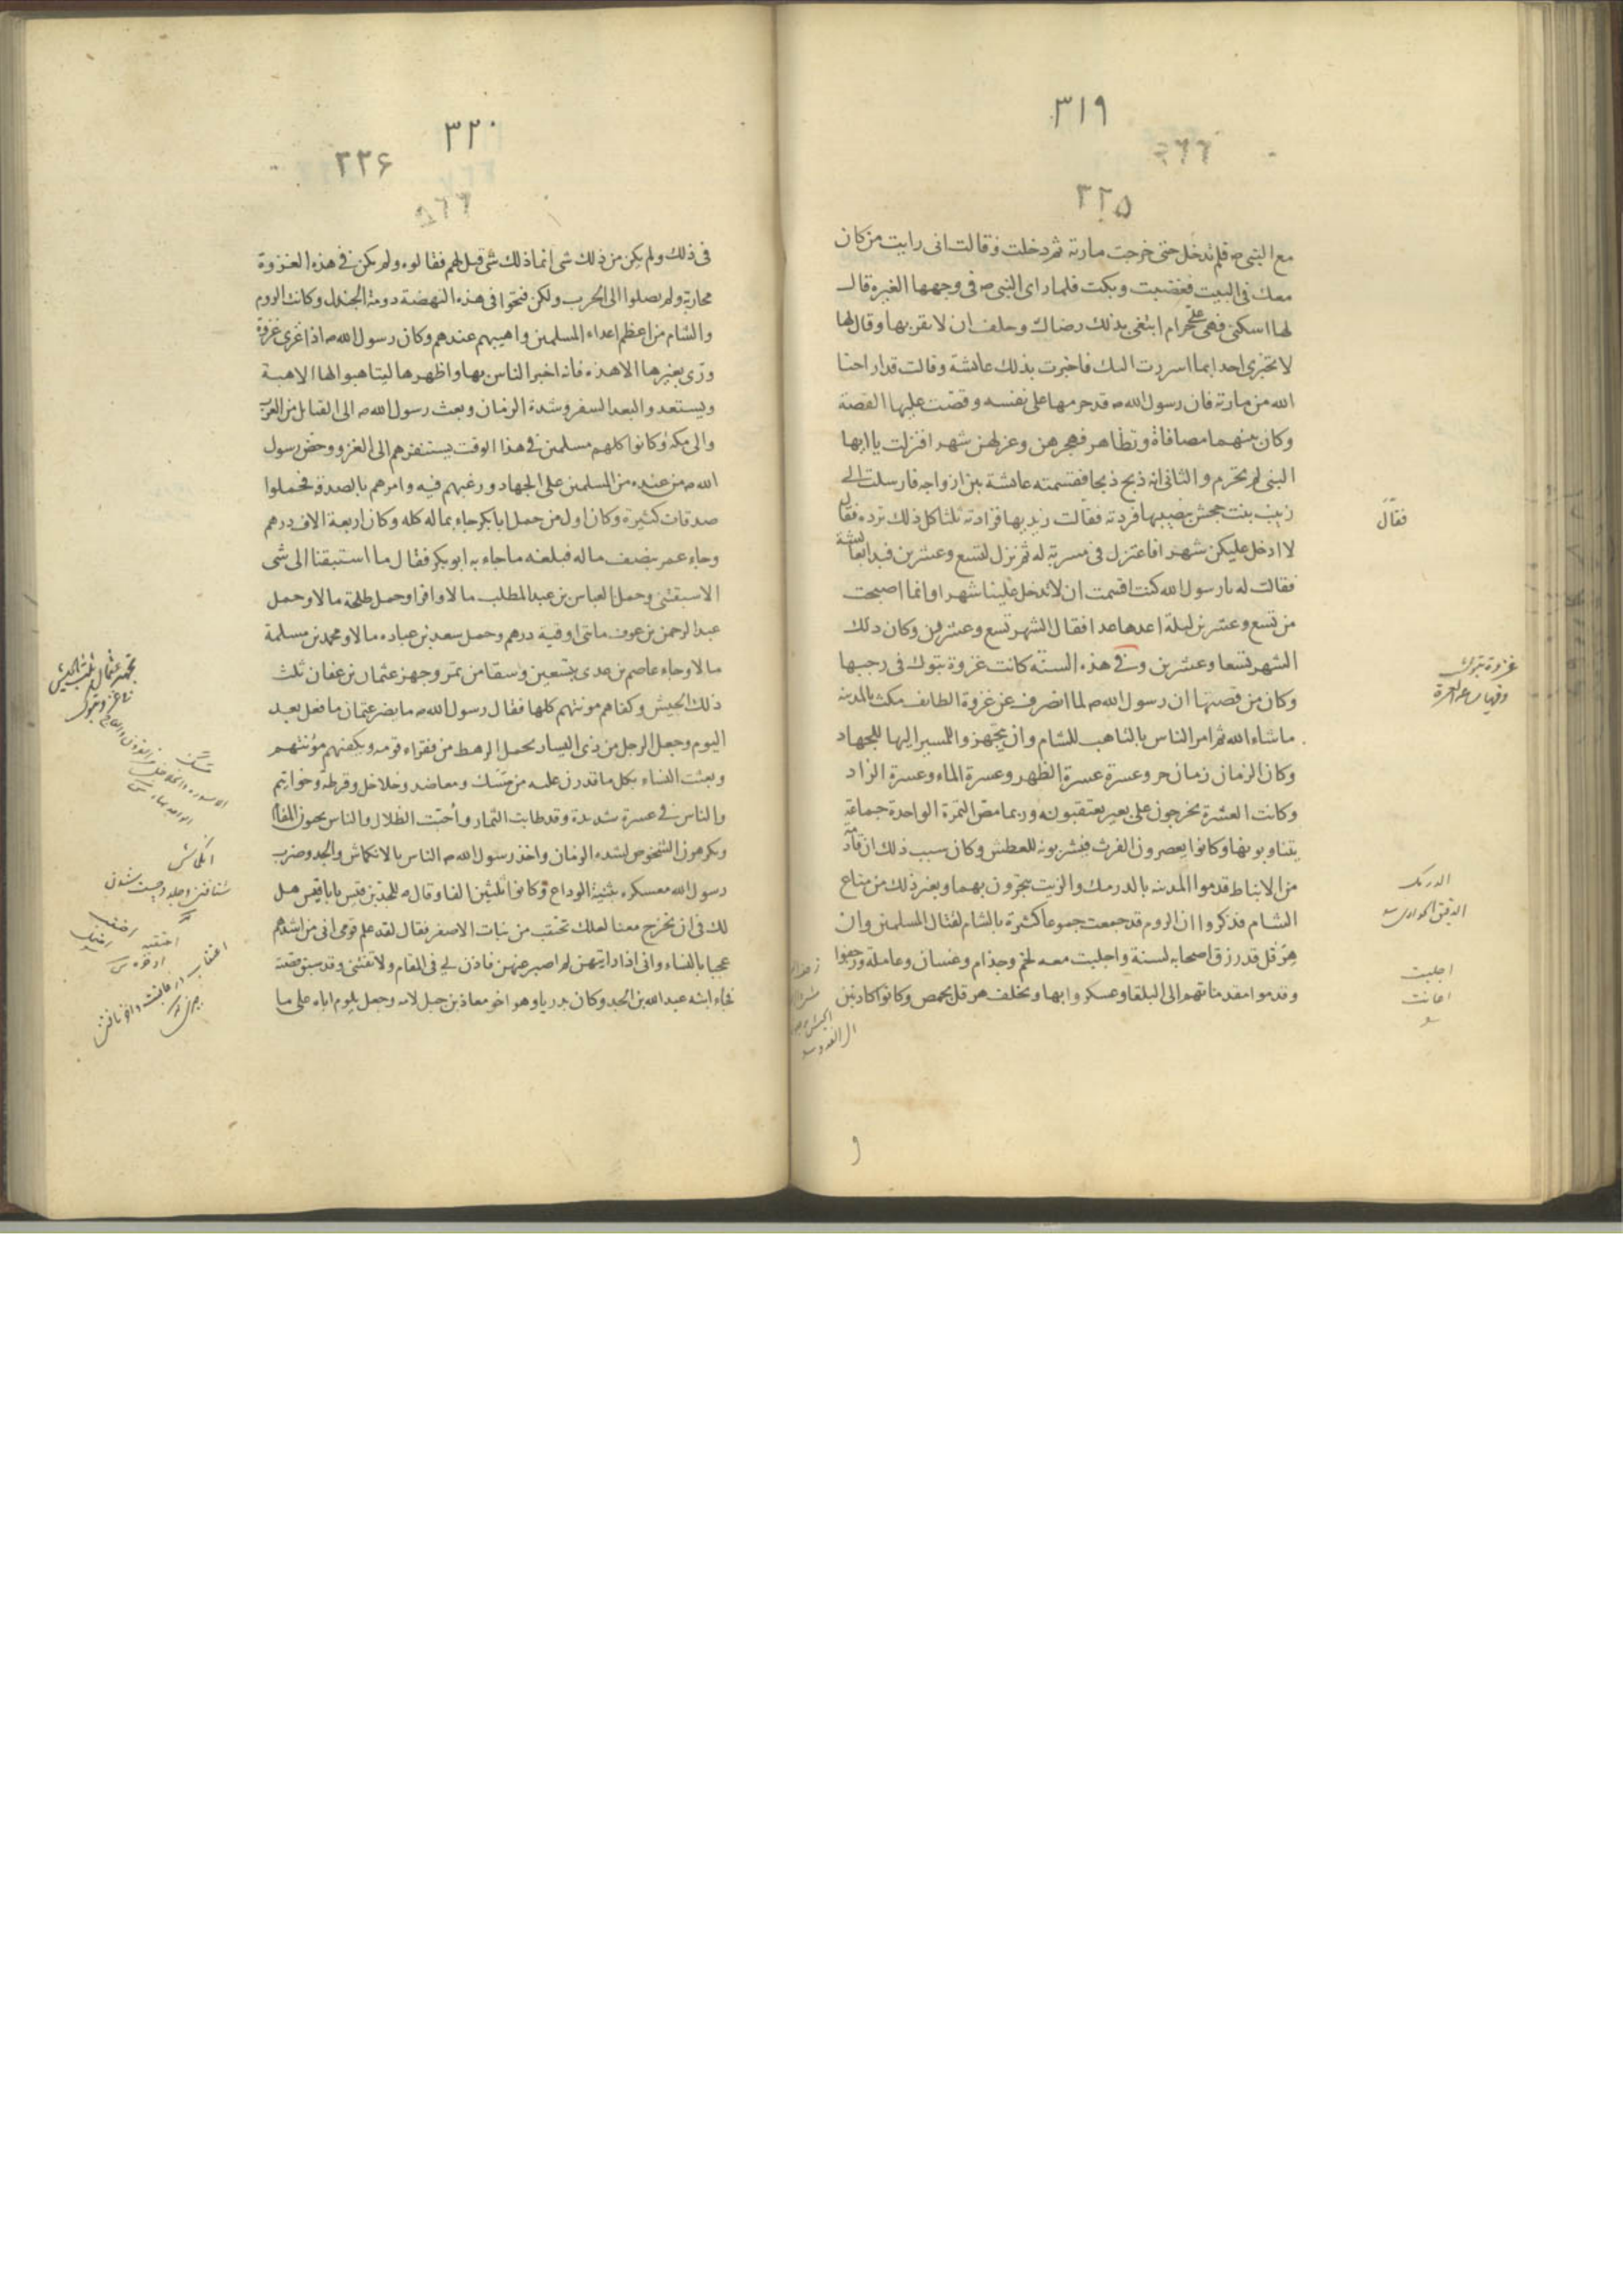 ٣١٩
٣٢٥
مع النبى ص فلم تدخل حتى خرجت مارته ثم دخلت وقالت انى رايت من كان
معك فى البيت فغضبت وبكت فلما راى النبى ص فى وجهها الغيرة قال
لها اسكتى فهى على حرام ابتغى بذلك رضاك وحلف ان لا يقربها وقال لها
لا تخبرى احدا بما اسررت اليك فاخبرت بذلك عائشة وقالت قد اراحنا
الله من مارته فان رسول الله ص قد حرمها على نفسه وقصت عليها القصة
وكان بينهما مصافاة وتظاهر فهجرهن وعزلهن شهرا فنزلت يا ايها
النبى لم تحرم والثانى انه ذبح ذبحا فقسمته عائشة بين ازواجه فارسلت الى
زينب بنت جحش بنصيبها فردته فقالت زيديها فزادته ثلثا كل ذلك ترده فقال
فقال
لا ادخل عليكن شهرا فاعتزل فى مسربة له ثم نزل لتسع وعشرين فبدا بعائشة
فقالت له يا رسول الله كنت اقسمت ان لا تدخل علينا شهرا وانما اصبحت
من تسع وعشرين ليلة اعدها عدا فقال الشهر تسع وعشرون وكان ذلك
الشهر تسعا وعشرين وفى هذه السنة كانت غزوة تبوك فى رجبها
غزوة تبوك
وكان من قصتها ان رسول الله ص لما انصرف عن غزوة الطايف مكث بالمدينه
ما شاء الله ثم امر الناس بالتاهب للشام وان يتجهزوا للمسير اليها للجهاد
وكان الزمان زمان حر وعسرة عسرة الظهر وعسرة الماء وعسرة الزاد
وكانت العشرة يخرجون على بعير يعتقبونه وربما مص التمرة الواحدة جماعة
يتناوبونها وكانوا يعصرون الفرث فيشربونه للعطش وكان سبب ذلك ان قادمة
من الانباط قدموا المدينه بالدرمك والزيت يتجرون بهما وبغير ذلك من متاع
الدرمك
الدقيق الحوارى
الشام فذكروا ان الروم قد جمعت جموعا كثيرة بالشام لقتال المسلمين وان
هرقل قد رزق اصحابه لسنة واجلبت معه لخم وجذام وغسان وعاملة وزحفوا
اجلبت
اعانت
وقدموا مقدماتهم الى البلقا وعسكروا بها وتخلف هرقل بحمص وكانوا كاذبين
٣٢٠
٣٣۶
فى ذلك ولم يكن من ذلك شى انما ذلك شى قيل لهم فقالوه ولم يكن فى هذه الغزوة
محاربة ولم يصلوا الى الحرب ولكن فتحوا فى هذه النهضة دومة الجندل وكانت الروم
والشام من اعظم اعداء المسلمين واهيبهم عندهم وكان رسول الله ص اذا غزى غزوة
ورى بغيرها الا هذه فانه اخبر الناس بها واظهرها ليتاهبوا لها الاهبة
ويستعد والبعد السفر وشدة الزمان وبعث رسول الله ص الى القبايل من العرب
والى مكه وكانوا كلهم مسلمين فى هذا الوقت يستنفرهم الى الغزو وحض رسول
الله ص من عنده من المسلمين على الجهاد ورغبهم فيه وامرهم بالصدقة فحملوا
صدقات كثيرة وكان اول من حمل ابا بكر جاء بماله كله وكان اربعة الاف درهم
وجاء عمر بنصف ماله فبلغه ما جاء به ابو بكر فقال ما استبقنا الى شى
الا سبقنى وحمل العباس بن عبد المطلب مالا وافرا وحمل طلحة مالا وحمل
عبد الرحمن بن عوف مائتى اوقية درهم وحمل سعد بن عباده مالا ومحمد بن مسلمة
مالا وجاء عاصم بن عدى بتسعين وسقا من تمر وجهز عثمان بن عفان ثلث
ذلك الجيش وكفاهم مونتهم كلها فقال رسول الله ص ما يضر عثمان ما فعل بعد
اليوم وجعل الرجل من ذى اليسار يحمل الرهط من فقراء قومه ويكفيهم مؤنتهم
وبعثت النساء بكل ما قدرن عليه من مسك ومعاضد وخلاخل وقرطة وخواتيم
والناس فى عسرة شديدة وقد طابت الثمار وأحبت الظلال والناس يحبون المقام
ويكرهون الشخوص لشدة الزمان واخذ رسول الله ص الناس بالانكماش والجد وضرب
انكماش
رسول الله معسكره بثنية الوداع وكانوا ثلثين الفا وقال ص للجد بن قيس يا با قيس هل
لك فى ان تخرج معنا لعلك تحتقب من بنات الاصفر فقال لقد علم قومى انى من اشدهم
عجبا بالنساء وانى اذا رايتهن لم اصبر عنهن فاذن لى فى المقام ولا تفتنى وقد سبق قصته
فجاء ابنه عبد الله بن الجد وكان بدريا وهو اخو معاذ بن جبل لامه وجعل يلوم اباه على ما